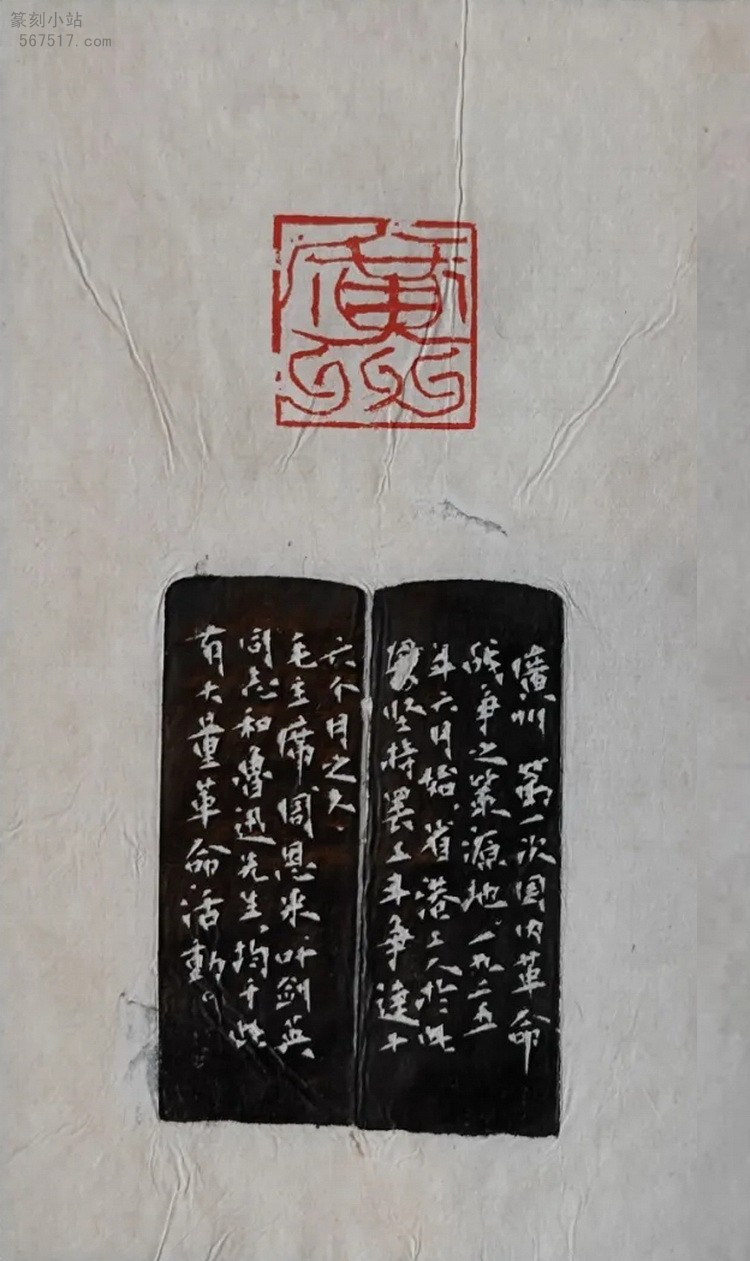 篆刻小站
567517.com
廣州
廣州 第一次國内革命
战争之策源地、一九二五
年六月始、省港工人於此
坚持罢工斗争達十
六个月之久、
毛主席周恩来叶剑英
同志和魯迅先生、均于此
有大量革命活動。